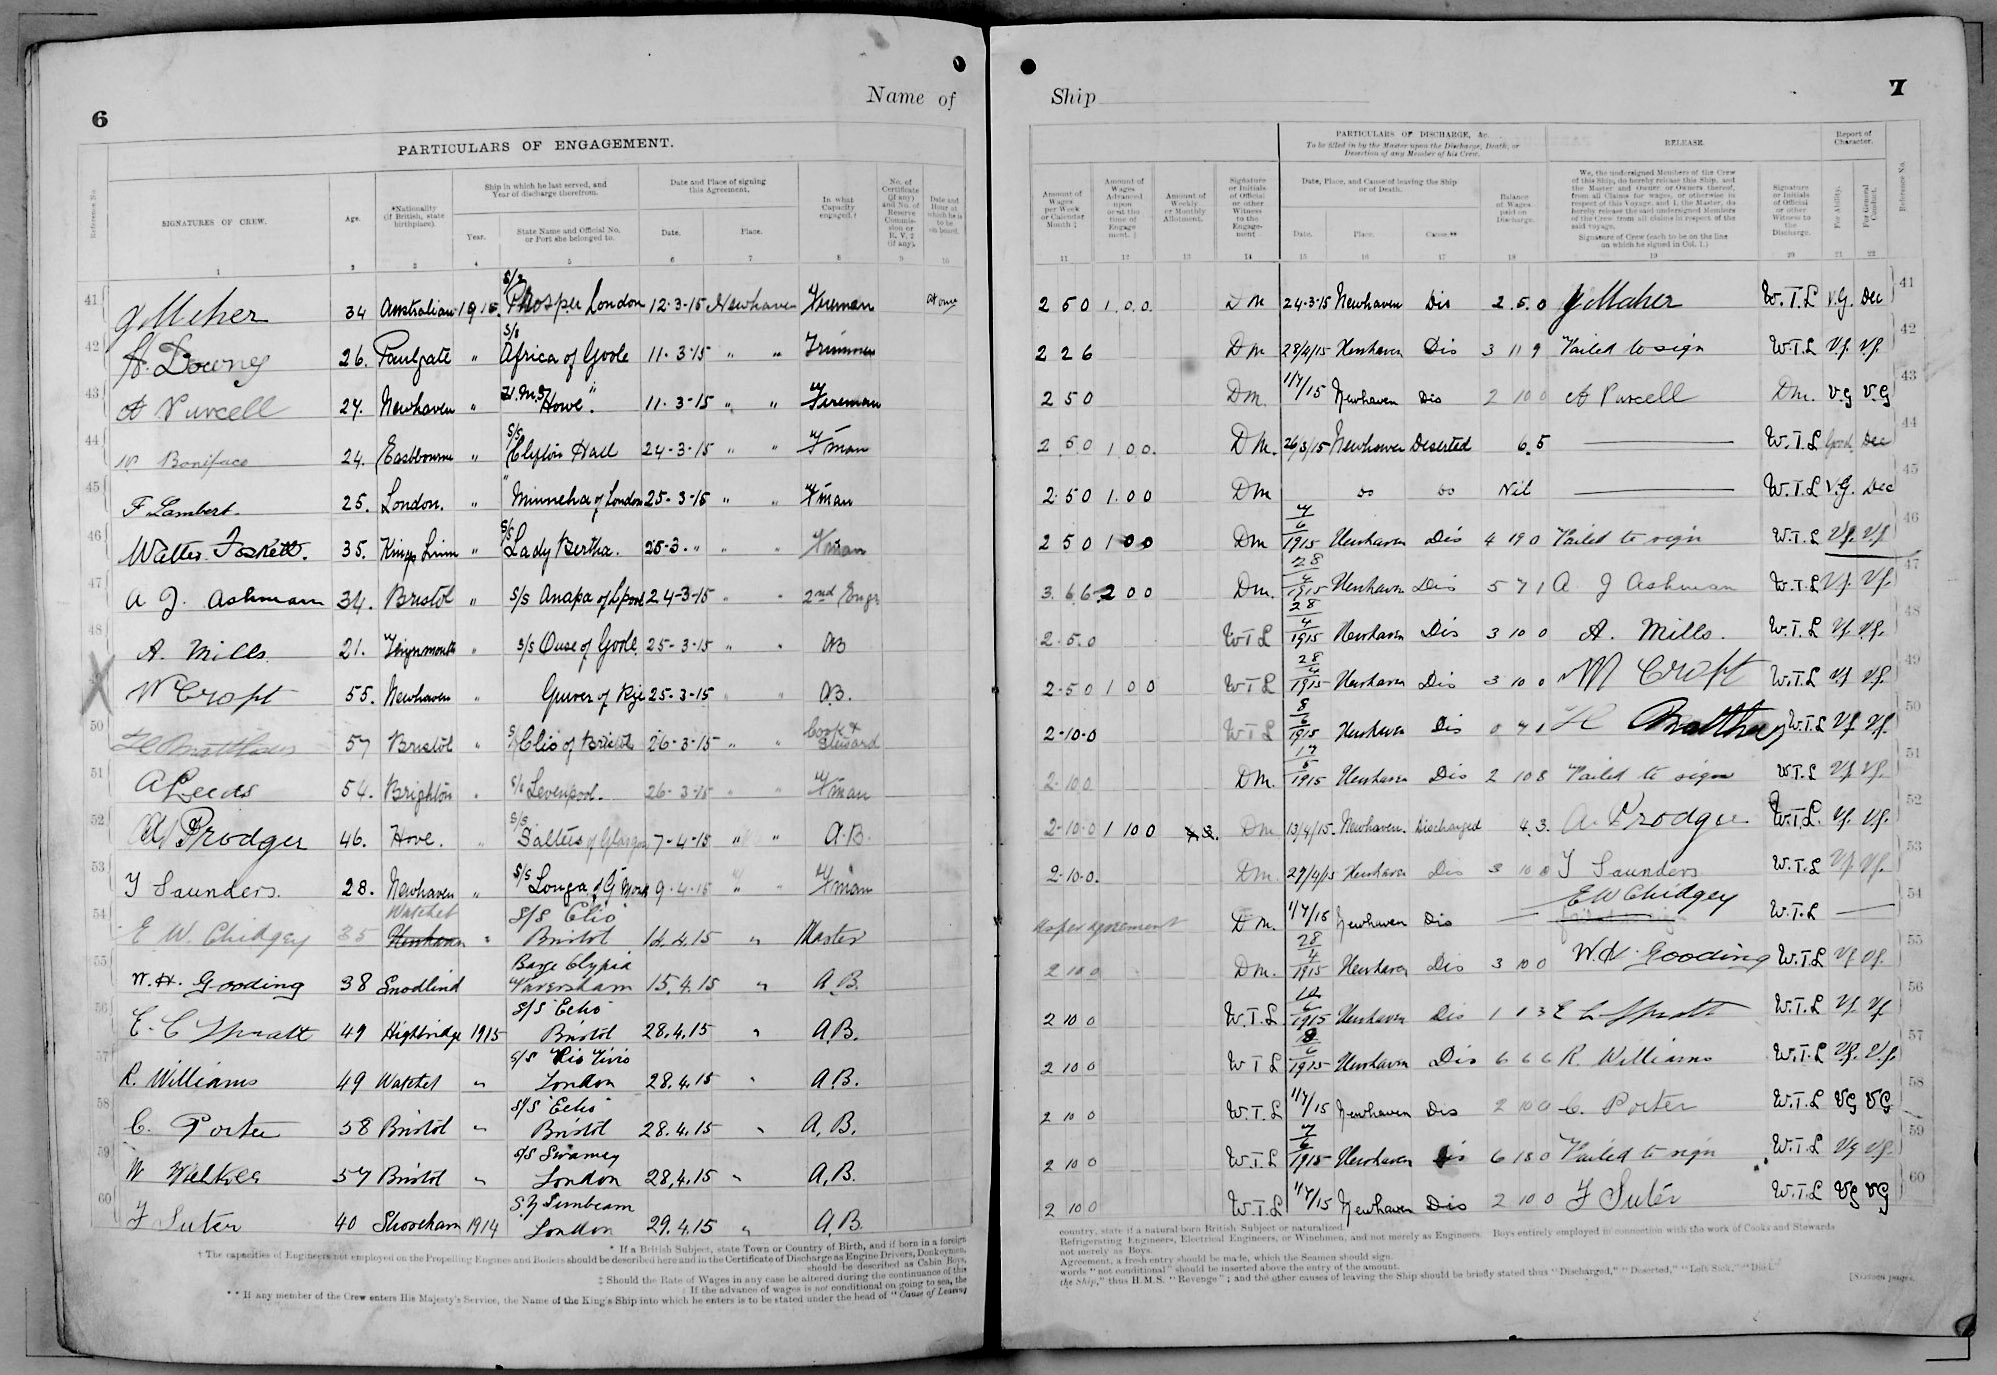 6
Name of
PARTICULARS OF ENGAGEMENT.
Reference No.
SIGNATURES OF CREW.
Age.
*Nationality (If British, state birthplace).
Ship in which he last served, and Year of discharge therefrom.
Year.
State Name and Official No. or Port she belonged to.
Date and Place of signing this Agreement.
Date.
Place.
In what Capacity engaged.†
No. of Certificate (if any) and No. of Reserve Commission or R.V. 2 (if any).
Date and Hour at which he is to be on board.
1 2 3 4 5 6 7 8 9 10
41 J Meher 34 Australian 1915 S/S Phosper London 12-3-15 Newhaven Fireman At once
42 H. Downey 26. " S/S Africa of Goole 11-3-15 " " Trimmer
43 A Purcell 27. Newhaven " H.M.S Howe " 11-3-15 " " Fireman
44 W Boniface 24. Eastbourne " S/S Clifton Hall 24-3-15 " " F'man
45 F Lambert. 25. London. " " Minneha of London 25-3-15 " " F'man
46 Walter Foskett. 35. Kings Linn " S/S Lady Bertha. 25-3-" " " F'man
47 A J. Ashman 34. Bristol " S/S Anapa of Lpool 24-3-15 " " 2nd Engr
48 A. Mills 21. " S/S Ouse of Goole 25-3-15 " " AB
W Croft 55. Newhaven " of Rye 25-3-15 " " A.B.
50 H Matthews 57 Bristol " S/S Clio of Bristol 26-3-15 " " Cook & Steward
51 A Leeds 54. Brighton " S/S Levenpool. 26-3-15 " " F'man
52 A Prodger 46. Hove. " S/S Salteis of Glasgow 7-4-15 " " A.B.
53 T Saunders. 28. Newhaven " S/S Longa of 9-4-15 " " F'man
54 E W. Chidgey 35 Watchet Newhaven " S/S "Clio" Bristol 14.4.15 " Master
55 W. H. Gooding 38 Snodlind Barge Clypia Faversham 15.4.15 " A.B.
56 E. C Spratt 49 Highbridge 1915 S/S "Echo" Bristol 28.4.15 " A.B.
57 R. Williams 49 Watchet " S/S "Rio Tivis London 28.4.15 " A.B.
58 C. Porter 58 Bristol " S/S "Echo" Bristol 28.4.15 " A.B.
59 W Walker 57 Bristol " S/S Swansey London 28.4.15 " A.B.
60 F Suter 40 Shoreham 1914 S.Y Sunbeam London 29.4.15 " A.B.
* If a British Subject, state Town or Country of Birth, and if born in a foreign
† The capacities of Engineers not employed on the Propelling Engines and Boilers should be described here and in the Certificate of Discharge as Engine Drivers, Donkeymen,
should be described as Cabin Boys,
‡ Should the Rate of Wages in any case be altered during the continuance of this
|| If the advance of wages is not conditional on going to sea, the
** If any member of the Crew enters His Majesty's Service, the Name of the King's Ship into which he enters is to be stated under the head of "Cause of Leaving
Ship
7
Amount of Wages per Week or Calendar Month ‡
Amount of Wages Advanced upon or at the time of Engagement.
Amount of Weekly or Monthly Allotment.
Signature or Initials of Official or other Witness to the Engagement
PARTICULARS OF DISCHARGE, &c.
To be filled in by the Master upon the Discharge, Death, or Desertion of any Member of his Crew.
Date, Place, and Cause of leaving the Ship or of Death.
Date.
Place.
Cause.**
Balance of Wages paid on Discharge.
RELEASE.
We, the undersigned Members of the Crew of this Ship, do hereby release this Ship, and the Master and Owner or Owners thereof, from all Claims for wages, or otherwise in respect of this Voyage; and I, the Master, do hereby release the said undersigned Members of the Crew from all claims in respect of the said voyage.
Signature of Crew (each to be on the line on which he signed in Col. 1.)
Signature or Initials of Official or other Witness to the Discharge.
Report of Character.
For Ability.
For General Conduct.
Reference No.
11 12 13 14 15 16 17 18 19 20 21 22
2 5 0 1.0.0. DM 24-3-15 Newhaven Dis 2.5.0 J Maher W.T.L V.G. Dec 41
2 2 6 DM 28/4/15 Newhaven Dis 3 11 9 Failed to sign W.T.L V.g. V.g. 42
2 5 0 DM. 1/7/15 Newhaven Dis 2 10 0 A Purcell DM. V.G V.G 43
2.5.0 1 0 0. DM. 26/3/15 Newhaven Deserted 6.5 W.T.L Good Dec 44
2.5 0 1.0 0 DM do do Nil W.T.L V.G. Dec 45
2 5 0 1 0 0 DM 7/6/1915 Newhaven Dis 4 19 0 Failed to sign W.T.L V.g. V.g 46
3.6.6 2 0 0 DM. 28/4/1915 Newhaven Dis 5 7 1 A. J Ashman W.T.L V.g. V.g. 47
2.5.0 W T L 28/4/1915 Newhaven Dis 3 10 0 A. Mills. W.T.L V.g. V.g. 48
2-5 0 1 0 0 W T L 28/4/1915 Newhaven Dis 3 10 0 W Croft W.T.L V.g V.g. 49
2-10-0 W T L 8/6/1915 Newhaven Dis 0 7 1 H Matthews W.T.L V.g. V.g. 50
2-10 0 DM. 17/5/1915 Newhaven Dis 2 10 8 Failed to sign W.T.L V.g V.g. 51
2-10-0 1 10 0 DM. 13/4/15 Newhaven. Discharged 4.3. A. Prodger W.T.L. V.g. V.g. 52
2-10-0. DM. 29/4/15 Newhaven Dis 3 10 0 T Saunders W.T.L V.g V.g. 53
As per agreement DM. 1/7/15 Newhaven Dis — E W Chidgey W.T.L — 54
2 10 0 DM. 28/4/1915 Newhaven Dis 3 10 0 W. H. Gooding W.T.L V.g V.g. 55
2 10 0 W.T.L Newhaven Dis 1 1 3 E C Spratt W.T.L V.g. V.g 56
2 10 0 W T L Newhaven Dis 6 6 6 R. Williams W.T.L V.g. V.g. 57
2 10 0 W.T.L 1/7/15 Newhaven Dis 2 10 0 C. Porter W.T.L V.G V.G 58
2 10 0 W.T.L 7/6/1915 Newhaven Dis 6 18 0 Failed to sign W.T.L V.g V.g. 59
2 10 0 W.T.L 1/7/15 Newhaven Dis 2 10 0 F Suter W.T.L V.G V.G 60
country, state if a natural born British Subject or naturalized.
Refrigerating Engineers, Electrical Engineers, or Winchmen, and not merely as Engineers. Boys entirely employed in connection with the work of Cooks and Stewards
not merely as Boys.
Agreement, a fresh entry should be made, which the Seamen should sign.
words "not conditional" should be inserted above the entry of the amount.
the Ship," thus H.M.S. "Revenge"; and the other causes of leaving the Ship should be briefly stated thus "Discharged," "Deserted," "Left Sick," "Died."